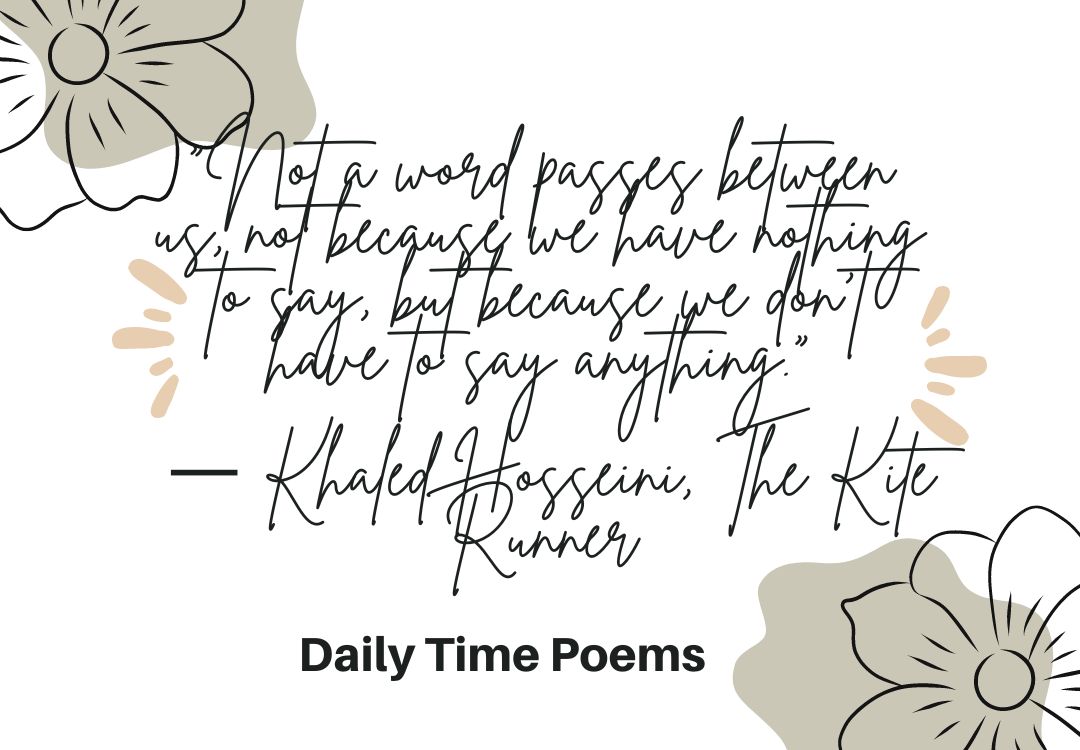 "Not a word passes between
us, not because we have nothing
to say, but because we don't
have to say anything."
— Khaled Hosseini, The Kite
Runner
Daily Time Poems